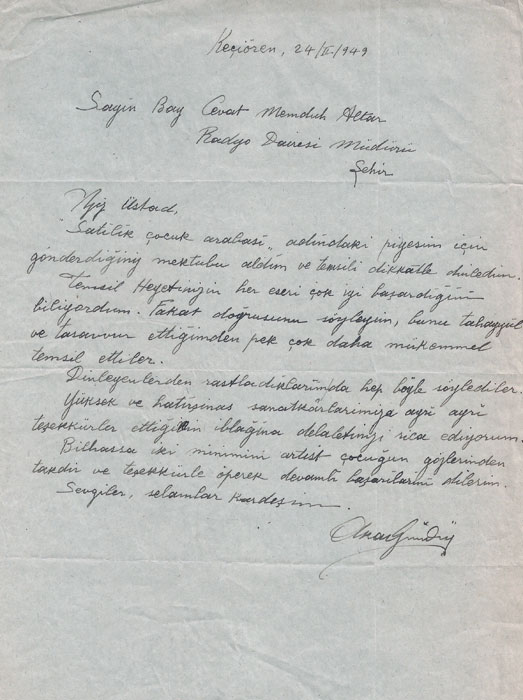 Keçiören, 24/II/1949
Sayin Bay Cevat Memduh Altar
Radyo Dairesi Müdürü
Şehir
Üstad,
"Satilik çocuk arabasi" adındaki piyesim için
gönderdiğiniz mektubu aldim ve temsili dikkatle dinledim.
Temsil Heyetinizin her eseri çok iyi başardiğini
biliyordum. Fakat doğrusunu söyleyim, bunu tahayyül
ve tasavvur ettiğimden pek çok daha mükemmel
temsil ettiler.
Dinleyenlerden rastladıklarımda hep böyle söylediler.
Yüksek ve hatırşinas sanatkârlarimiza ayri ayri
teşekkürler ettiğimin iblağina delaletinizi rica ediyorum.
Bilhassa iki minimini artist çocuğun gözlerinden
takdir ve teşekkürle öperek devamli başarilarini dilerim.
Sevgiler, selamlar kardeşim.
Aka Gündüz